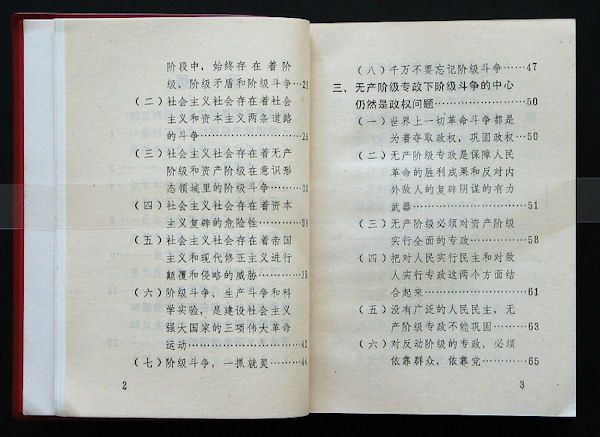 阶段中，始终存在着阶
级、阶级矛盾和阶级斗争…21
（二）社会主义社会存在着社会
主义和资本主义两条道路
的斗争………………………26
（三）社会主义社会存在着无产
阶级和资产阶级在意识形
态领域里的阶级斗争………
（四）社会主义社会存在着资本
主义复辟的危险性…………
（五）社会主义社会存在着帝国
主义和现代修正主义进行
颠覆和侵略的威胁…………
（六）阶级斗争、生产斗争和科
学实验，是建设社会主义
强大国家的三项伟大革命
运动…………………………42
（七）阶级斗争，一抓就灵………44
2
（八）千万不要忘记阶级斗争……47
三、无产阶级专政下阶级斗争的中心
仍然是政权问题………………50
（一）世界上一切革命斗争都是
为着夺取政权，巩固政权…50
（二）无产阶级专政是保障人民
革命的胜利成果和反对内
外敌人的复辟阴谋的有力
武器…………………………51
（三）无产阶级必须对资产阶级
实行全面的专政……………58
（四）把对人民实行民主和对敌
人实行专政这两个方面结
合起来………………………61
（五）没有广泛的人民民主，无
产阶级专政不能巩固………63
（六）对反动阶级的专政，必须
依靠群众，依靠党…………65
3